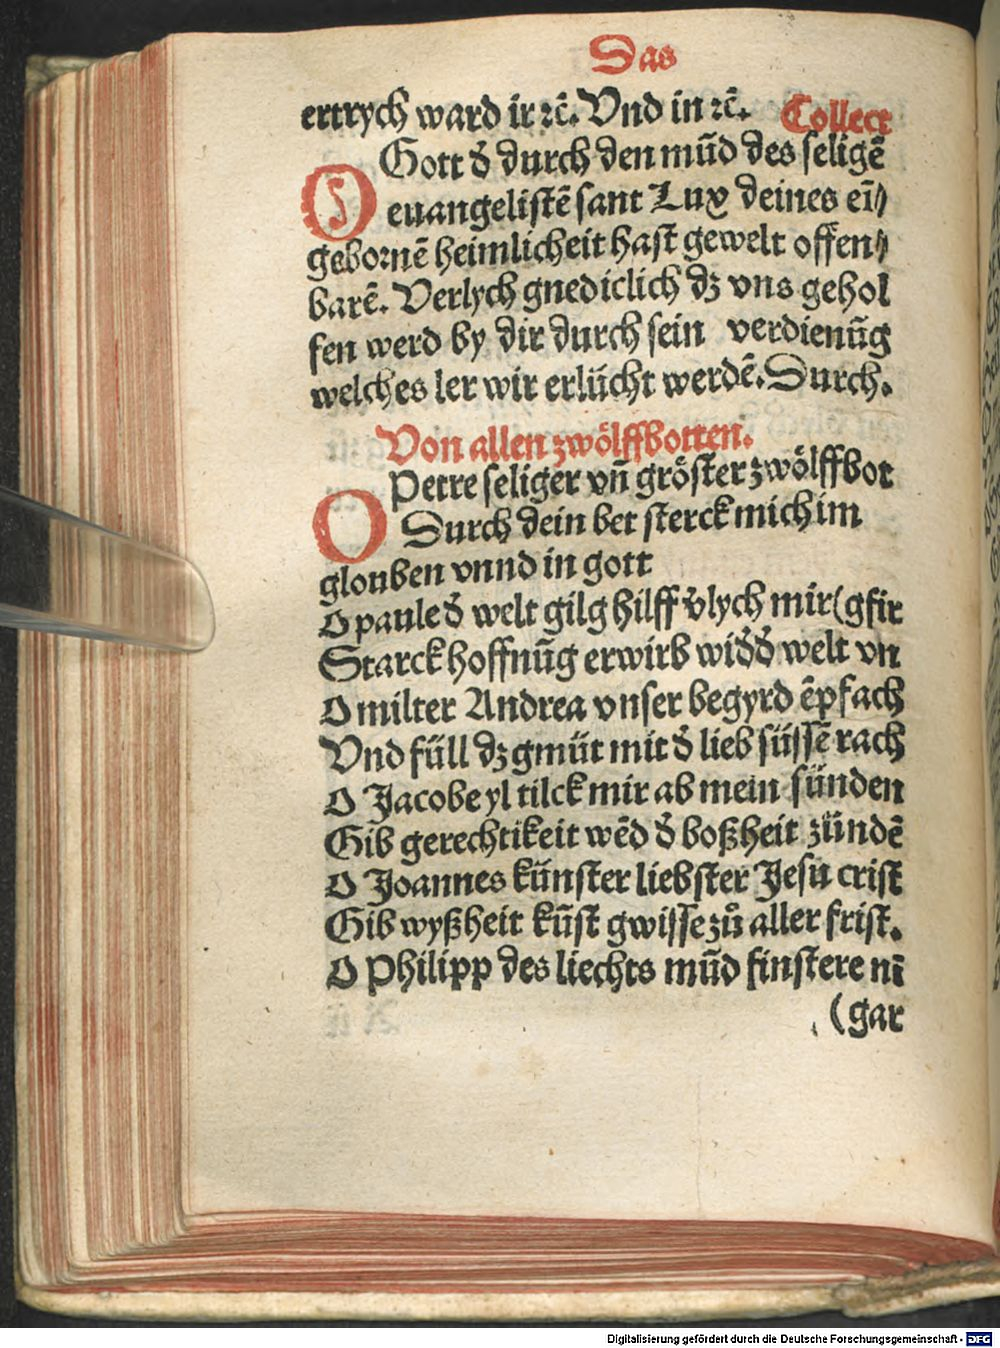 Das
ertrych ward ir ꝛc̄. Vnd in ꝛc̄. Collect
O Gott d̕ durch den mūd des seligē
euangelistē sant Lux deines eī⸗
gebornē heimlicheit hast gewelt offen⸗
barē. Verlych gnediclich dz vns gehol
fen werd by dir durch sein verdienūg
welches ler wir erlücht werdē. Durch.
Von allen zwölffbotten.
O Petre seliger vn̄ gröster zwölffbot
Durch dein bet sterck mich im
glouben vnnd in gott
O paule d̕ welt gilg hilff v̕lych mir (gfir
Starck hoffnūg erwirb wid̕ d̕ welt vn
O milter Andrea vnser begyrd ēpfach
Vnd füll dz gmüt mit d̕ lieb süssē rach
O Jacobe yl tilck mir ab mein sünden
Gib gerechtikeit wēd d̕ boßheit zündē
O Joannes künster liebster Jesu crist
Gib wyßheit kūst gwisse zuͦ aller frist.
O Philipp des liechts mūd finstere nī
(gar
Digitalisierung gefördert durch die Deutsche Forschungsgemeinschaft - DFG